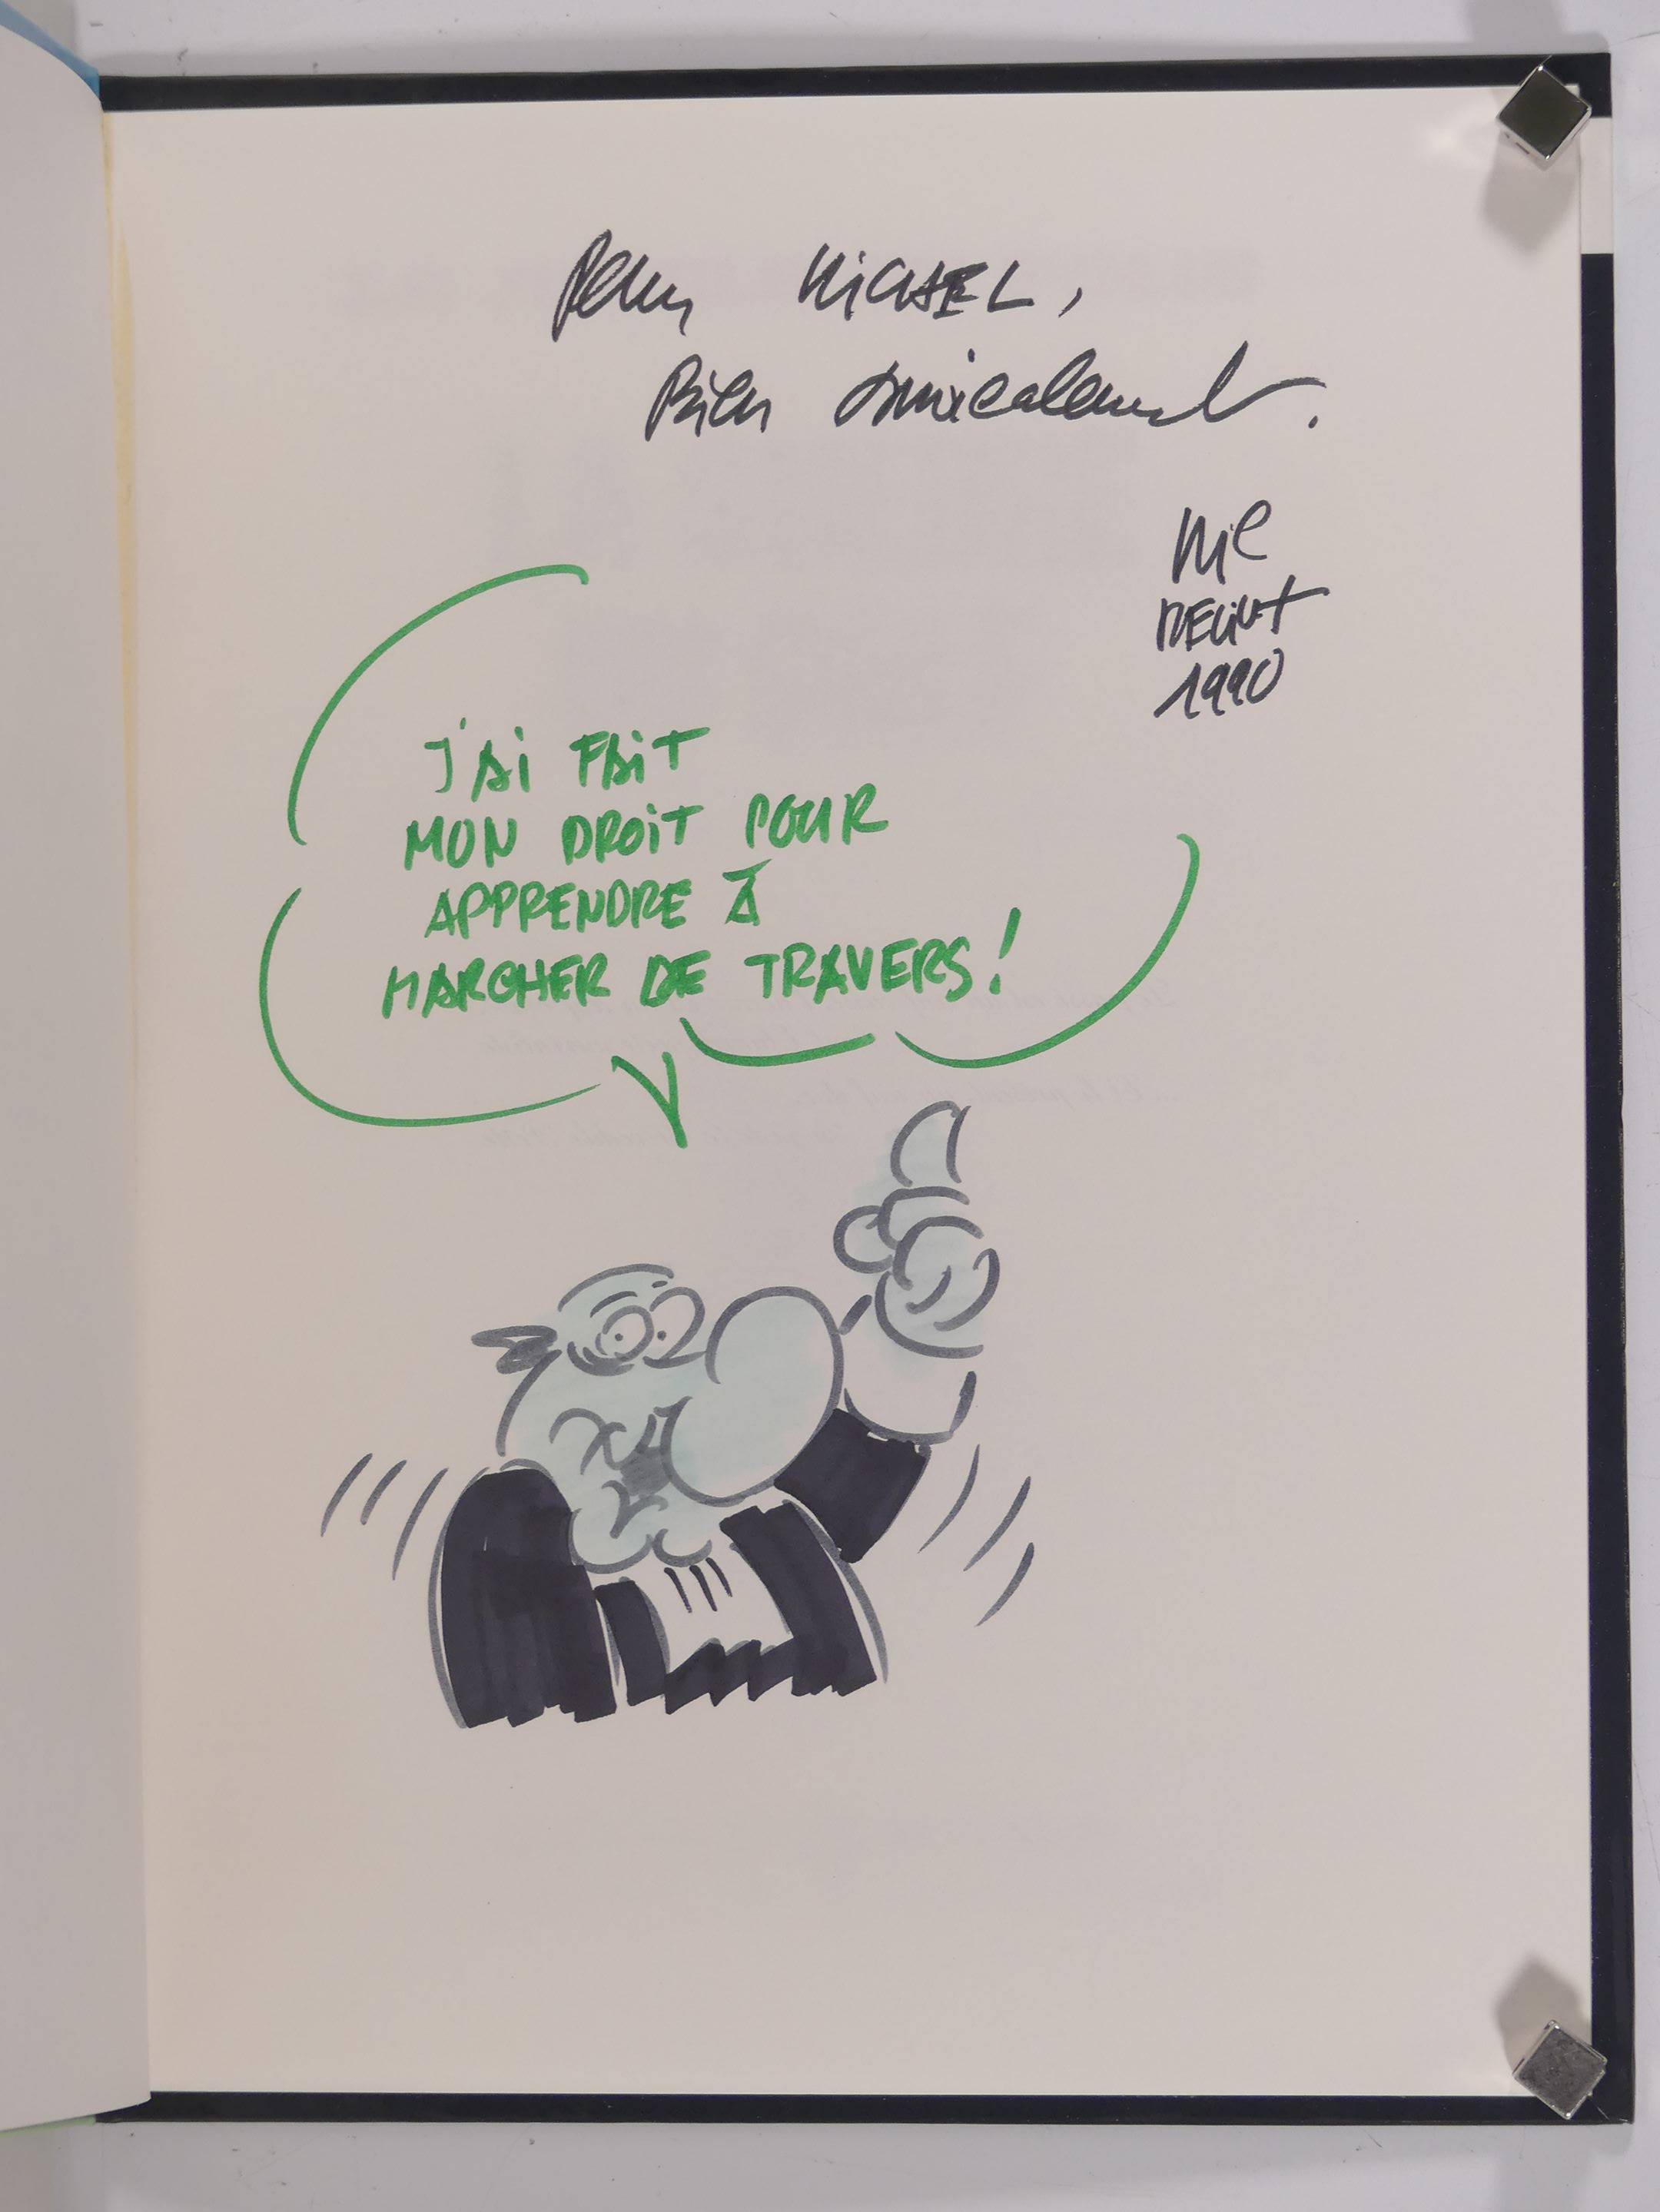 Pour MICHEL,
Bien amicalement.
Mic
DELINX
1990
J'AI FAIT
MON DROIT POUR
APPRENDRE À
MARCHER DE TRAVERS!